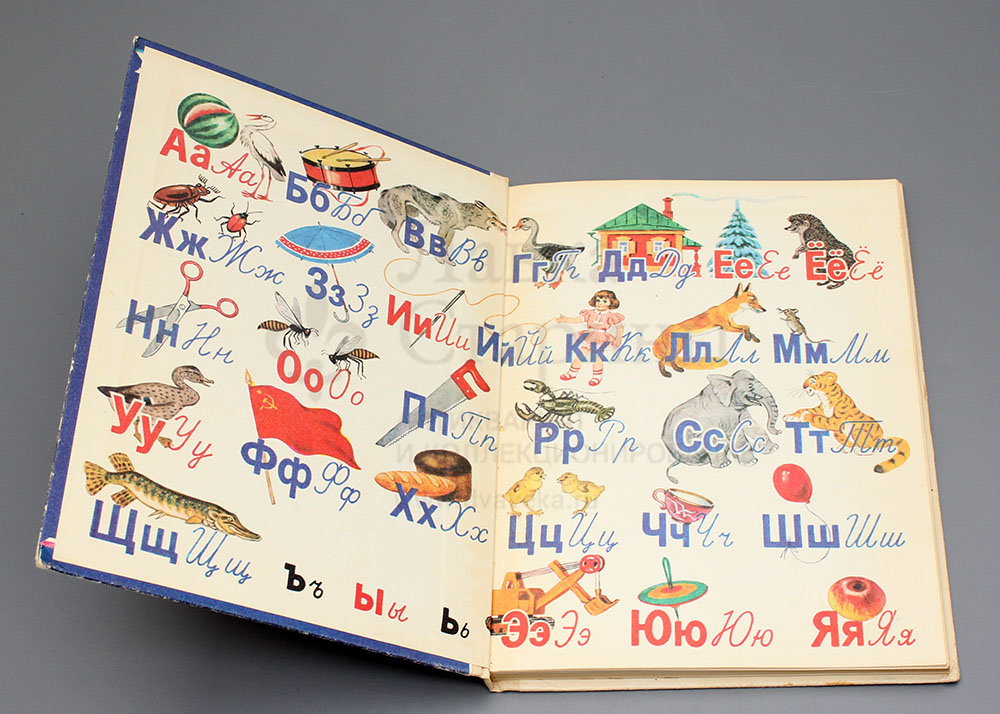 Аа Аа Бб Бб Вв Вв Гг Гг Дд Дд Ее Ее Ёё Ёё
Жж Жж Зз Зз Ии Ии Йй Йй Кк Кк Лл Лл Мм Мм
Нн Нн Оо Оо Пп Пп Рр Рр Сс Сс Тт Тт
Уу Уу Фф Фф Хх Хх Цц Цц Чч Чч Шш Шш
Щщ Щщ Ъъ Ыы Ьь Ээ Ээ Юю Юю Яя Яя